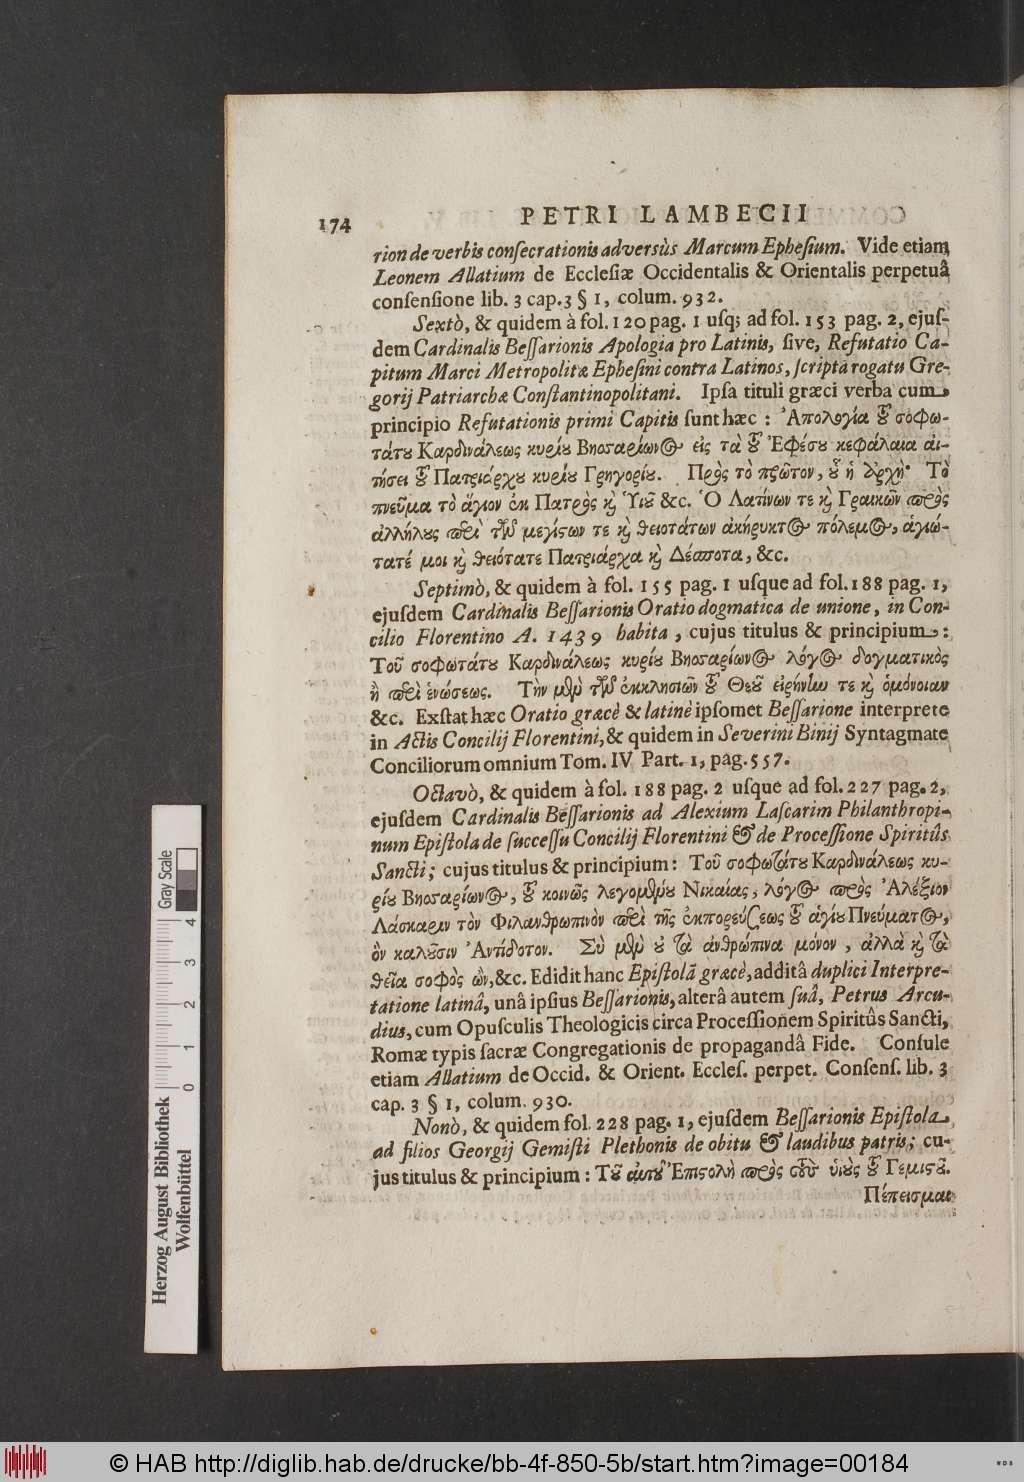 174 PETRI LAMBECII
rion de verbis consecrationis adversùs Marcum Ephesium. Vide etiam
Leonem Allatium de Ecclesiæ Occidentalis & Orientalis perpetuâ
consensione lib. 3 cap. 3 § 1, colum. 932.
Sextò, & quidem à fol. 120 pag. 1 usq; ad fol. 153 pag. 2, ejus-
dem Cardinalis Bessarionis Apologia pro Latinis, sive, Refutatio Ca-
pitum Marci Metropolitæ Ephesini contra Latinos, scripta rogatu Gre-
gorij Patriarchæ Constantinopolitani. Ipsa tituli græci verba cum
principio Refutationis primi Capitis sunt hæc : Ἀπολογία τοῦ σοφω-
τάτου Καρδινάλεως κυρίου Βησσαρίωνος εἰς τὰ τοῦ Ἐφέσου κεφάλαια αἰ-
τήσει τοῦ Πατριάρχου κυρίου Γρηγορίου. Πρὸς τὸ πρῶτον, οὗ ἡ ἀρχή· Τὸ
πνεῦμα τὸ ἅγιον ἐκ Πατρὸς καὶ Ὑιοῦ &c. Ὁ Λατίνων τε καὶ Γραικῶν πρὸς
ἀλλήλους περὶ τῶν μεγίστων τε καὶ θειοτάτων ἀκήρυκτος πόλεμος, ἁγιώ-
τατέ μοι καὶ θειότατε Πατριάρχα καὶ Δέσποτα, &c.
Septimò, & quidem à fol. 155 pag. 1 usque ad fol. 188 pag. 1,
ejusdem Cardinalis Bessarionis Oratio dogmatica de unione, in Con-
cilio Florentino A. 1439 habita, cujus titulus & principium :
Τοῦ σοφωτάτου Καρδινάλεως κυρίου Βησσαρίωνος λόγος δογματικὸς
ἢ περὶ ἑνώσεως. Τὴν μὲν τῶν ἐκκλησιῶν τοῦ Θεοῦ εἰρήνην τε καὶ ὁμόνοιαν
&c. Exstat hæc Oratio græcè & latinè ipsomet Bessarione interprete
in Actis Concilij Florentini, & quidem in Severini Binij Syntagmate
Conciliorum omnium Tom. IV Part. 1, pag. 557.
Octavò, & quidem à fol. 188 pag. 2 usque ad fol. 227 pag. 2,
ejusdem Cardinalis Bessarionis ad Alexium Lascarim Philanthropi-
num Epistola de successu Concilij Florentini & de Processione Spiritûs
Sancti; cujus titulus & principium : Τοῦ σοφωτάτου Καρδινάλεως κυ-
ρίου Βησσαρίωνος, τοῦ κοινῶς λεγομένου Νικαίας, λόγος πρὸς Ἀλέξιον
Λάσκαριν τὸν Φιλανθρωπινὸν περὶ τῆς ἐκπορεύσεως τοῦ ἁγίου Πνεύματος,
ὃν καλοῦσιν Ἀντίδοτον. Σὺ μὲν οὐ τὰ ἀνθρώπινα μόνον, ἀλλὰ καὶ τὰ
θεῖα σοφὸς ὢν, &c. Edidit hanc Epistolā græcè, additâ duplici Interpre-
tatione latinâ, unâ ipsius Bessarionis, alterâ autem suâ, Petrus Arcu-
dius, cum Opusculis Theologicis circa Processionem Spiritûs Sancti,
Romæ typis sacræ Congregationis de propagandâ Fide. Consule
etiam Allatium de Occid. & Orient. Eccles. perpet. Consens. lib. 3
cap. 3 § 1, colum. 930.
Nonò, & quidem fol. 228 pag. 1, ejusdem Bessarionis Epistola
ad filios Georgij Gemisti Plethonis de obitu & laudibus patris; cu-
jus titulus & principium : Τοῦ αὐτοῦ Ἐπιστολὴ πρὸς τοὺς ὑιοὺς τοῦ Γεμιστοῦ.
Πέπεισμαι
Herzog August Bibliothek
Wolfenbüttel
0 1 2 3 4
Gray Scale
© HAB http://diglib.hab.de/drucke/bb-4f-850-5b/start.htm?image=00184
WDB